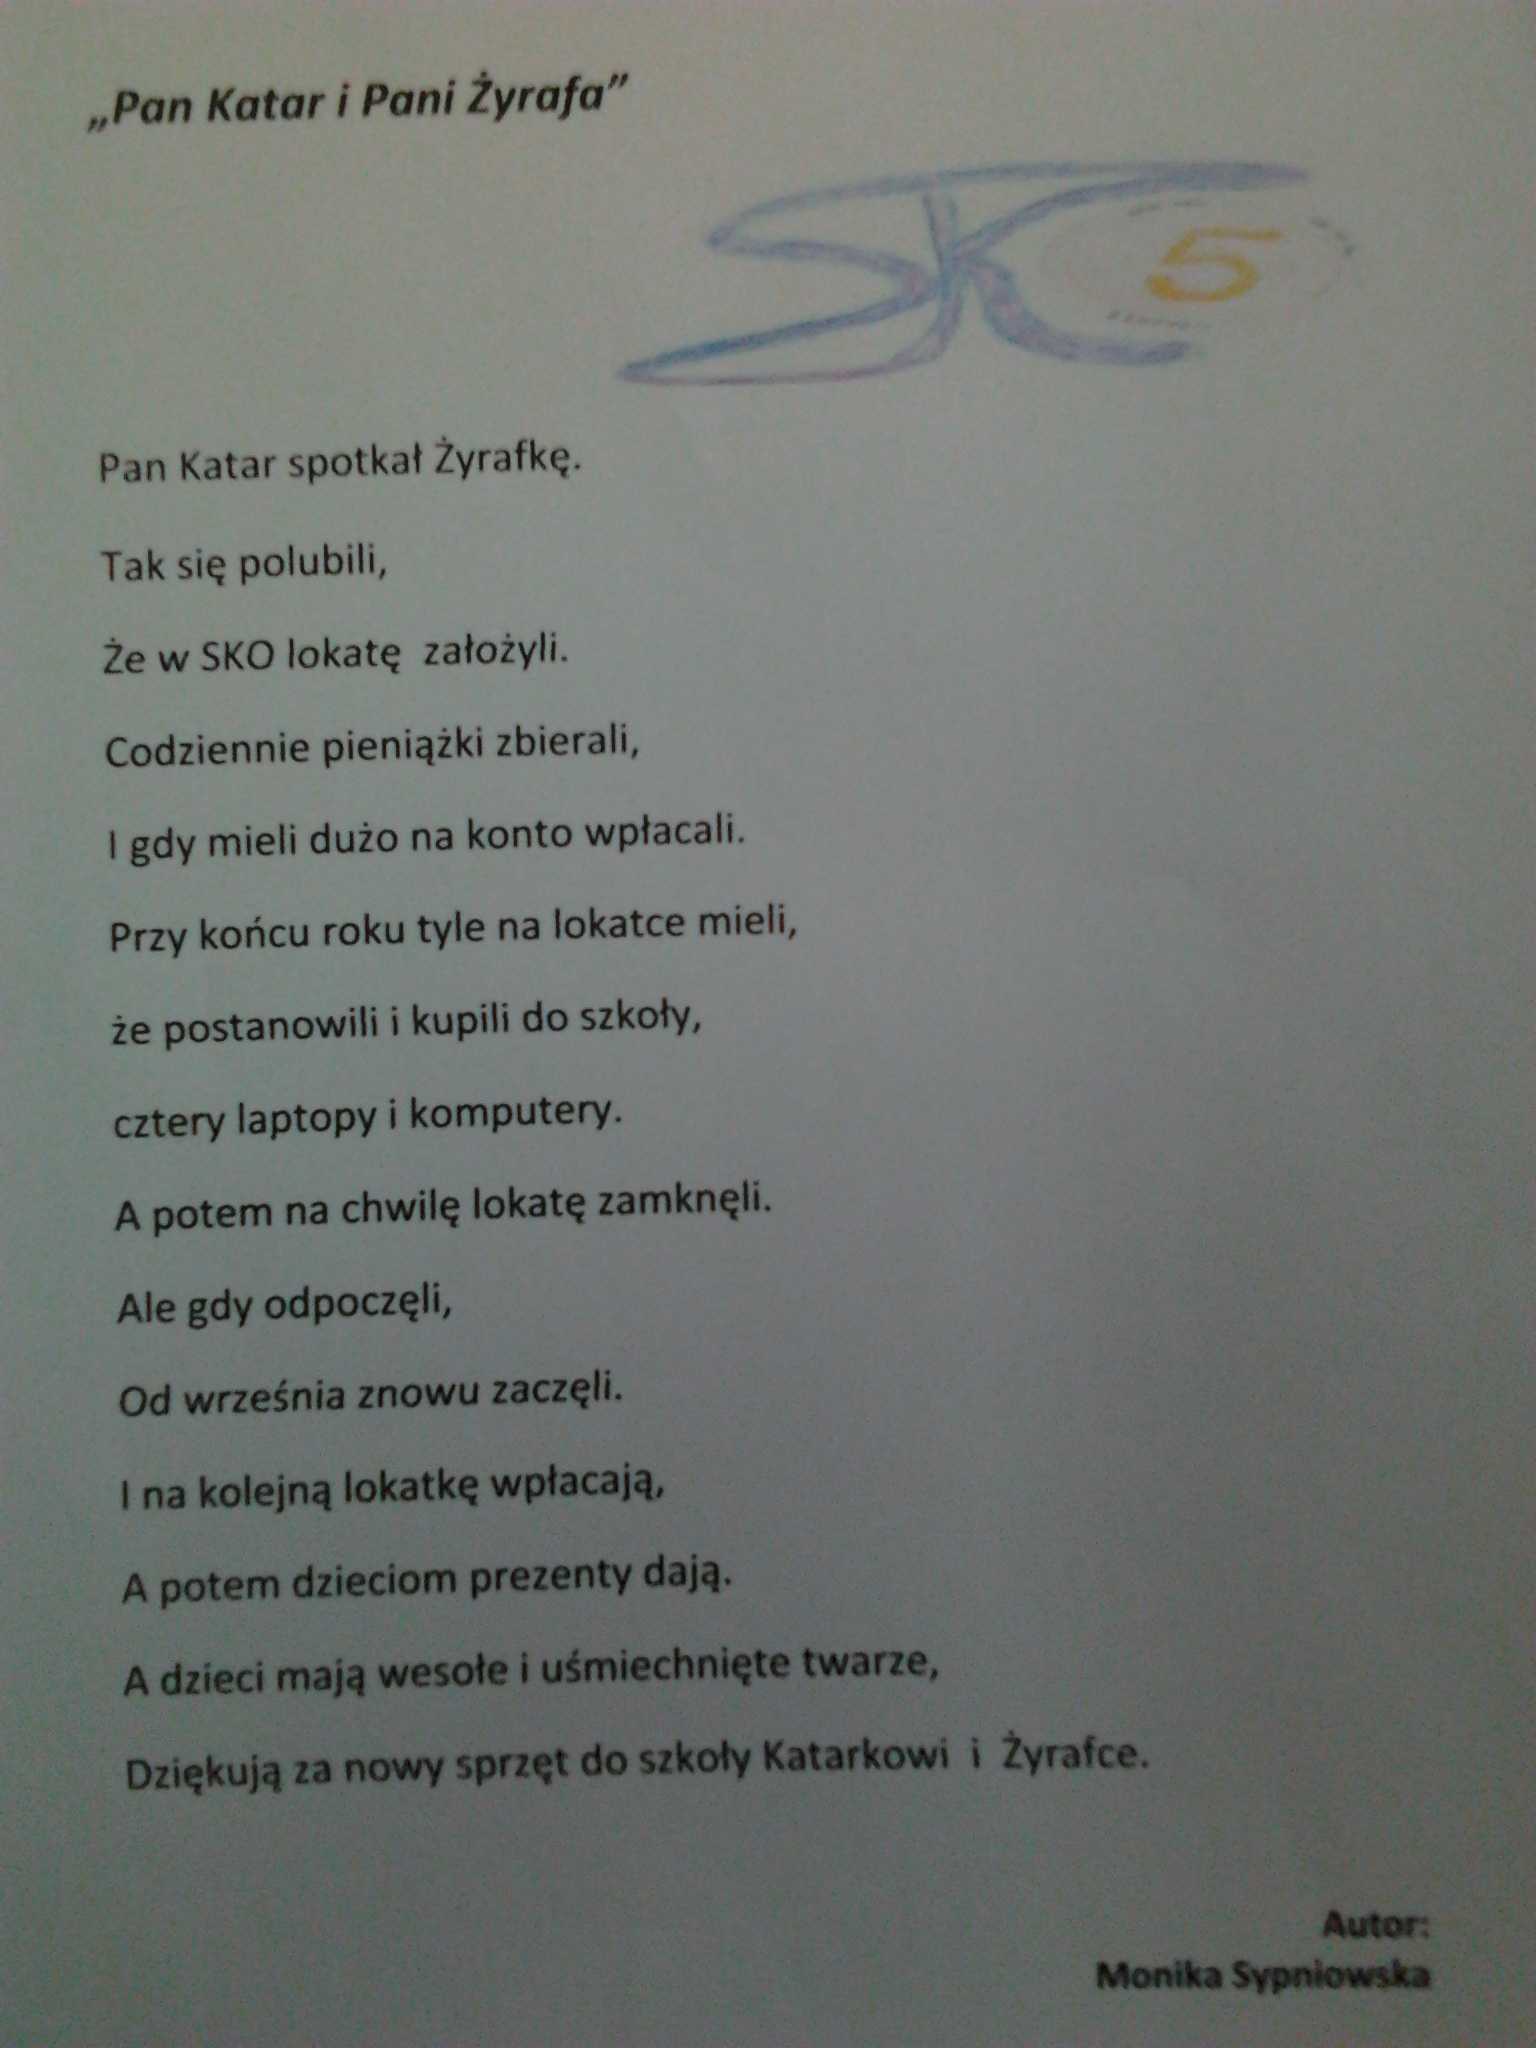 „Pan Katar i Pani Żyrafa”
SK 5
Pan Katar spotkał Żyrafkę.
Tak się polubili,
Że w SKO lokatę założyli.
Codziennie pieniążki zbierali,
I gdy mieli dużo na konto wpłacali.
Przy końcu roku tyle na lokatce mieli,
że postanowili i kupili do szkoły,
cztery laptopy i komputery.
A potem na chwilę lokatę zamknęli.
Ale gdy odpoczęli,
Od września znowu zaczęli.
I na kolejną lokatkę wpłacają,
A potem dzieciom prezenty dają.
A dzieci mają wesołe i uśmiechnięte twarze,
Dziękują za nowy sprzęt do szkoły Katarkowi i Żyrafce.
Autor:
Monika Sypniowska